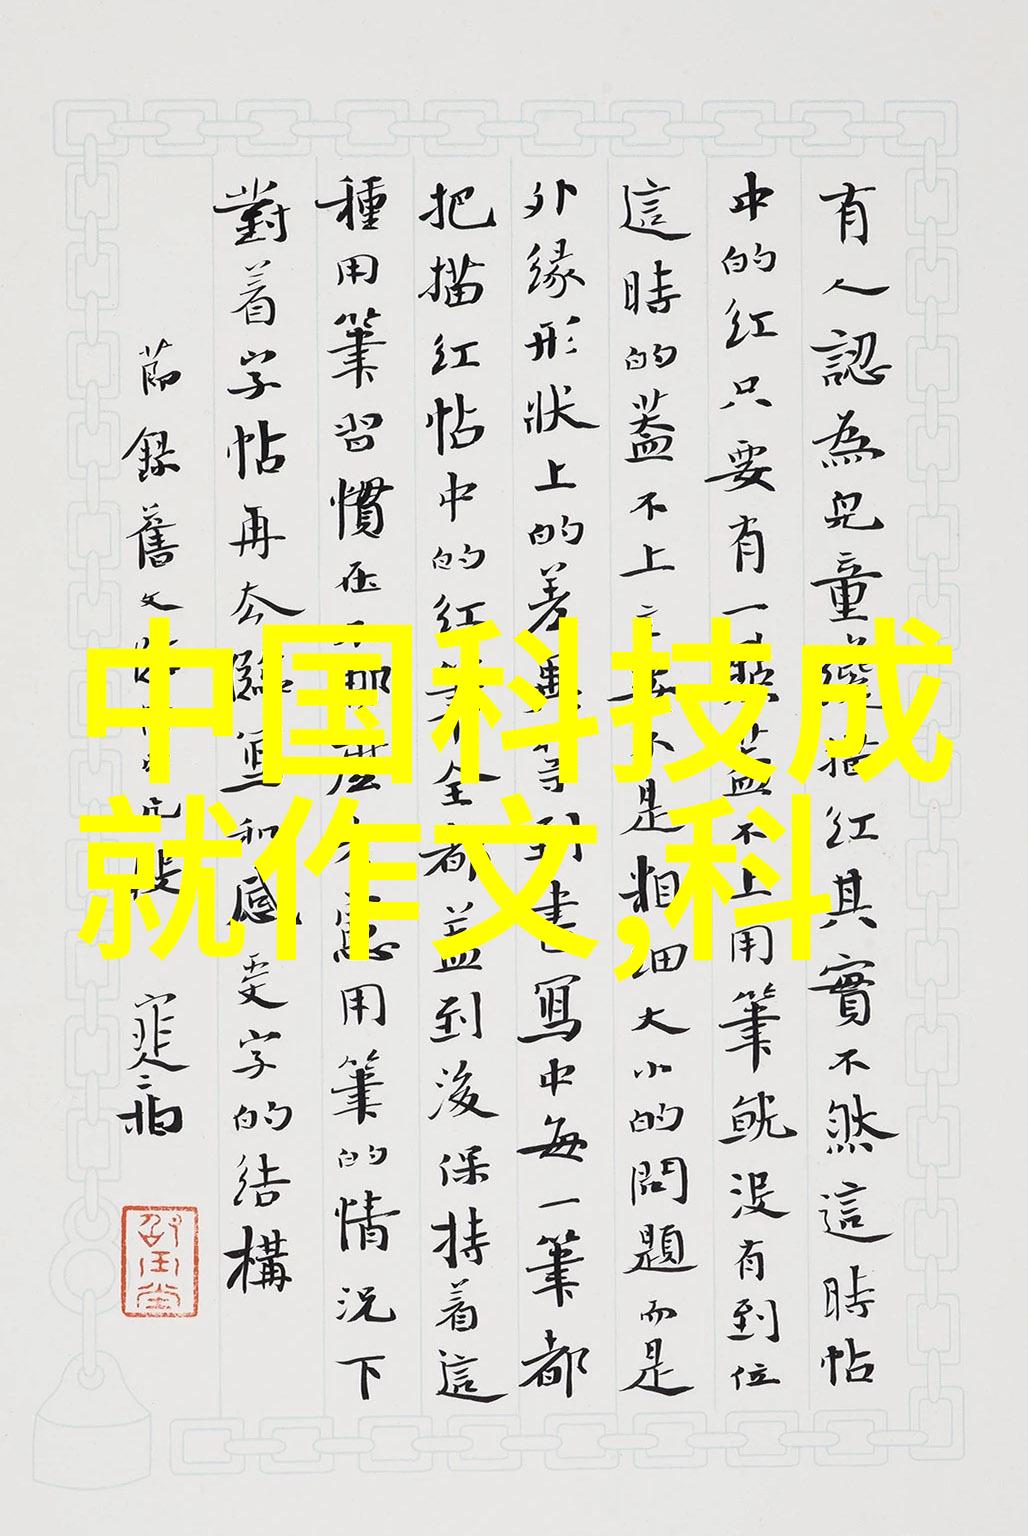 中国科技成
就作文,科
有人認為兒童描紅其實不然這時帖
中的紅只要有一點蓋不上用筆就沒有到位
這時的蓋不上主要不是粗細大小的問題而是
外緣形狀上的差異等到書寫中每一筆都
把描紅帖中的紅筆全都蓋到後保持着這
種用筆習慣在不那麼考慮用筆的情況下
對着字帖再去臨寫和感受字的結構
節錄舊文